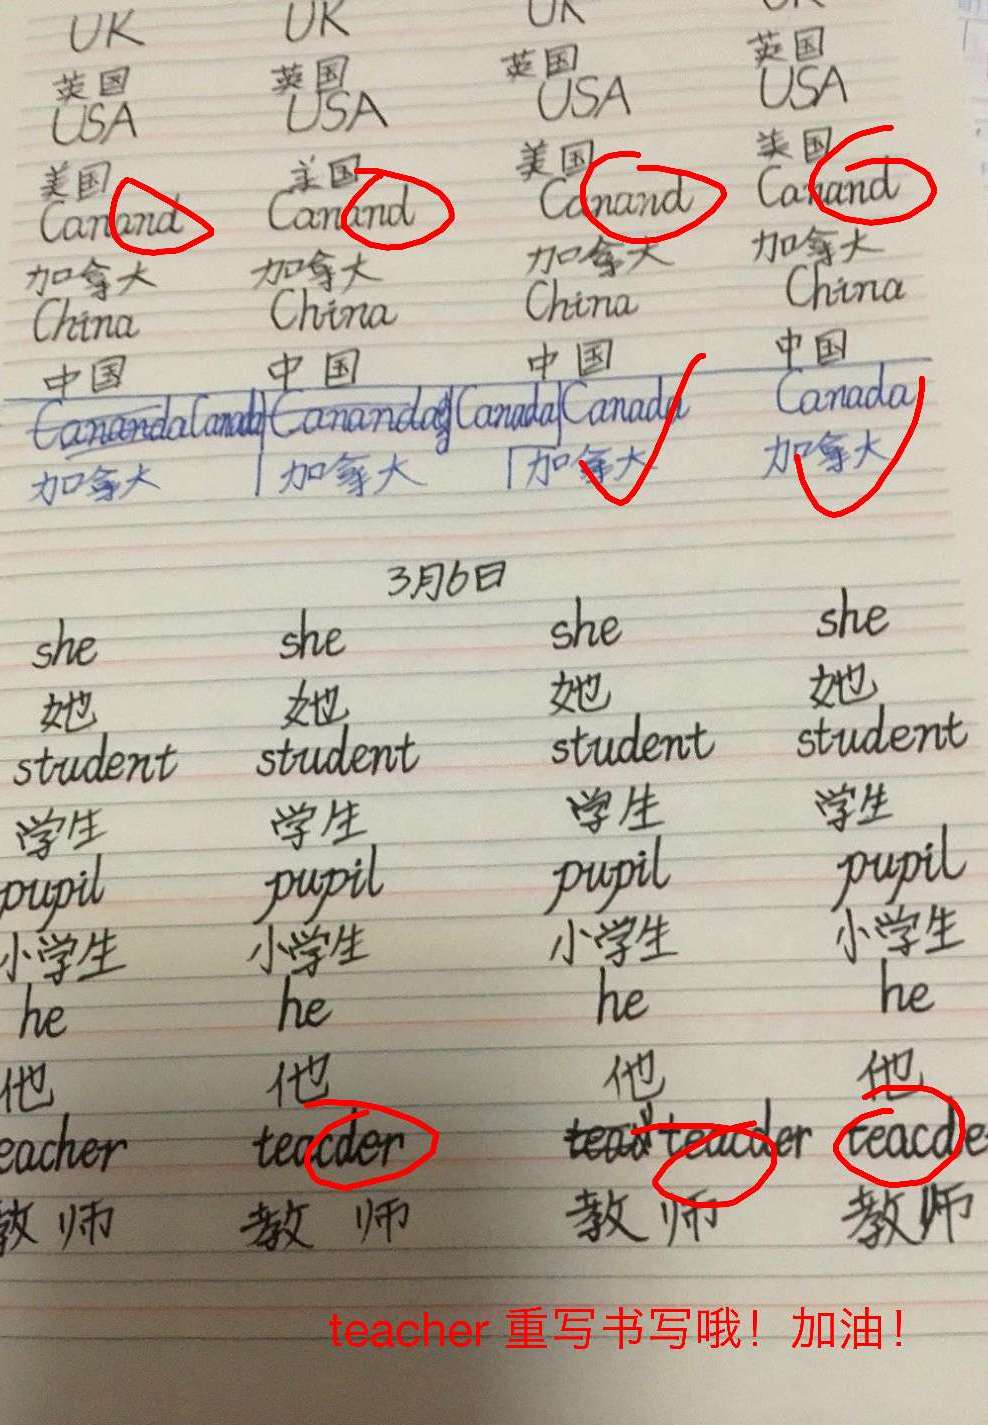 UK UK UK UK
英国 英国 英国 英国
USA USA USA USA
美国 美国 美国 美国
Canand Canand Canand Canand
加拿大 加拿大 加拿大 加拿大
China China China China
中国 中国 中国 中国
Cananda Canada Cananda Canada Canada Canada
加拿大 加拿大 加拿大 加拿大
3月6日
she she she she
她 她 她 她
student student student student
学生 学生 学生 学生
pupil pupil pupil pupil
小学生 小学生 小学生 小学生
he he he he
他 他 他 他
eacher teacder teacder teacde
教师 教师 教师 教师
teacher 重写书写哦！加油！